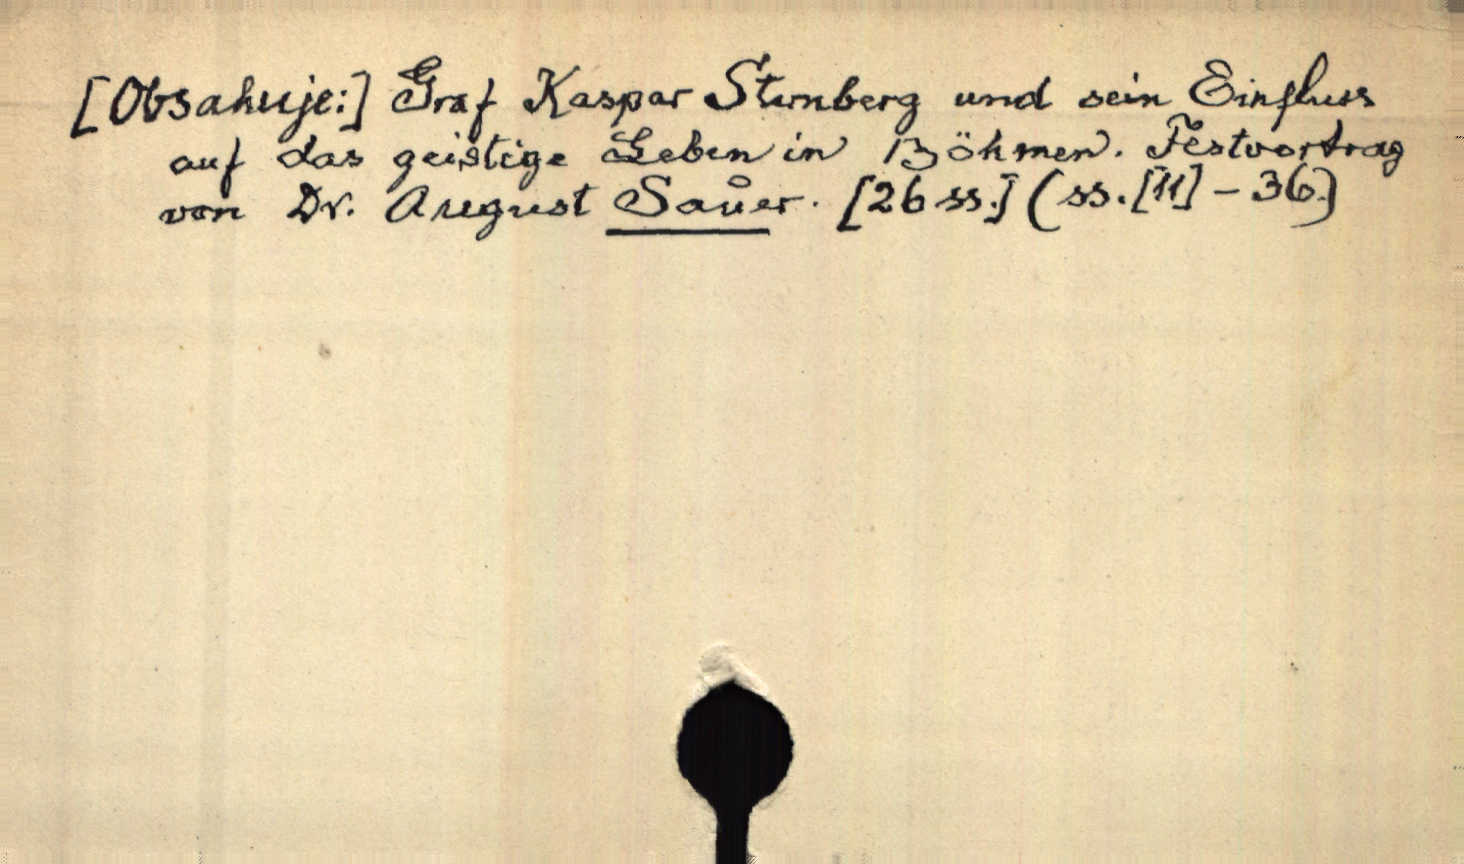 [Obsahuje:] Graf Kaspar Sternberg und sein Einfluss
auf das geistige Leben in Böhmen. Festvortrag
von Dr. August Sauer. [26 ss.] (ss. [11] - 36.)